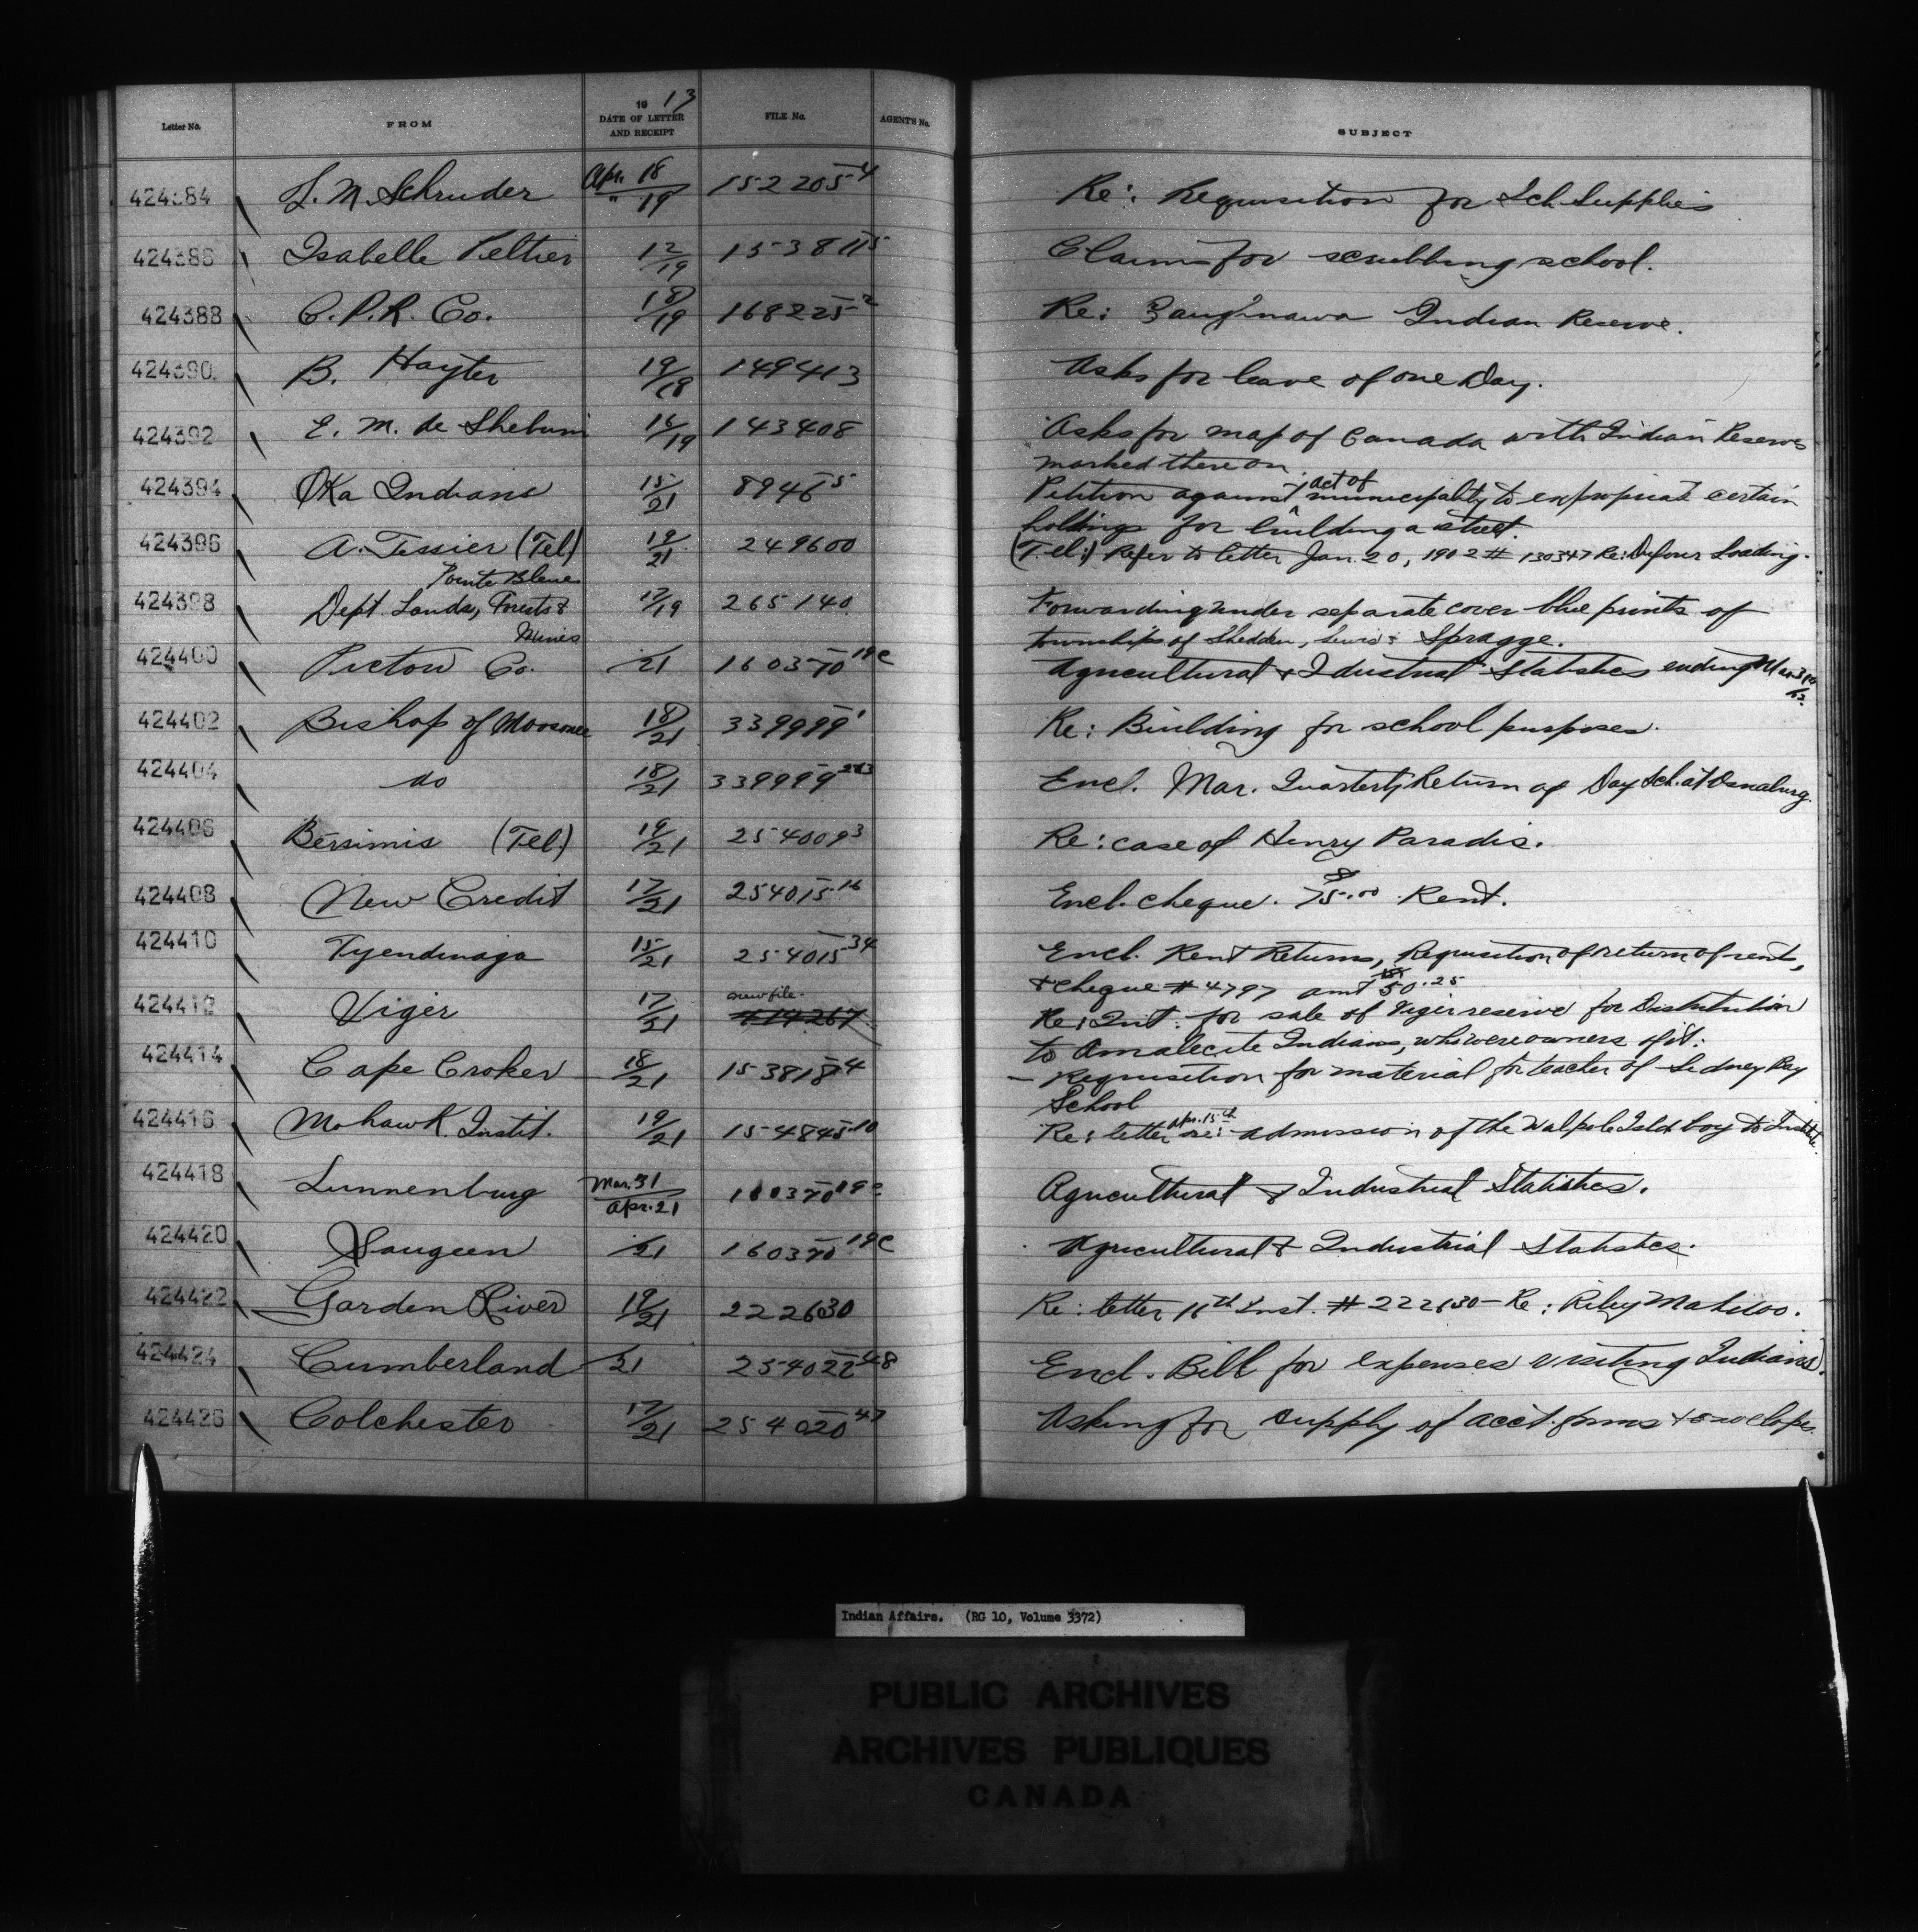 Letter No. FROM 19 13 DATE OF LETTER AND RECEIPT FILE No. AGENT'S No. SUBJECT
424384 L. M. Schruder Apr. 18 / " 19 152205-4 Re: Requisition for Sch. Supplies
424386 Isabelle Peltier 12/19 153811-5 Claim for scrubbing school.
424388 C.P.R. Co. 18/19 168225-2 Re: Indian Reserve.
424390 B. Hayter 19/19 149413 Asks for leave of one Day.
424392 E. M. de 16/19 143408 Asks for map of Canada with Indian Reserves
marked thereon.
424394 Oka Indians 15/21 8946-5 Petition against act of municipality to expropriate certain
holdings for building a street.
424396 A. Tessier (Tel) 19/21 249600 (Tel:) Refer to letter Jan. 20, 1902 # 130347 Re: Dufour Loading.
Pointe Bleue
424398 Dept. Lands, Forests & 17/19 265140 Forwarding under separate cover blue prints of
Mines townships of Shedden, Lewis & Spragge.
424400 Pictou Co. /21 160370-19c Agricultural & Idustrial Statistics ending Mar 31st
13.
424402 Bishop of Moosonee 18/21 339999-1 Re: Building for school purposes.
424404 do 18/21 339999-283 Encl. Mar. Quarterly Return of Day Sch. at Osnaburg.
424406 Bersimis (Tel.) 19/21 254009-3 Re: case of Henry Paradis.
424408 New Credit 17/21 254015-16 Encl. cheque. $75.00 Rent.
424410 Tyendinaga 15/21 254015-34 Encl. Rent Returns, Requisition of return of rents,
& cheque # 4797 amt $50.25
424412 Viger 17/21 new file. 414267 Re: Int. for sale of Viger reserve for Distribution
to Amalecite Indians, who were owners of it.
424414 Cape Croker 18/21 153818-4 – Requisition for material for teacher of Sidney Bay
School
424416 Mohawk Instit. 19/21 154845-10 Re: letter Apr. 15th re: admission of the Walpole Isld boy to Instit.
424418 Lunnenburg Mar. 31 / Apr. 21 160370-19c Agricultural & Industrial Statistics.
424420 Saugeen /21 160370-19c Agricultural & Industrial Statistics.
424422 Garden River 19/21 222630 Re: letter 16th Inst. # 222630 – Re: Riley
424424 Cumberland /21 254022-48 Encl. Bill for expenses visiting Indians.
424426 Colchester 17/21 254020-47 Asking for supply of acct. forms & envelopes.
Indian Affairs. (RG 10, Volume 3372)
PUBLIC ARCHIVES
ARCHIVES PUBLIQUES
CANADA